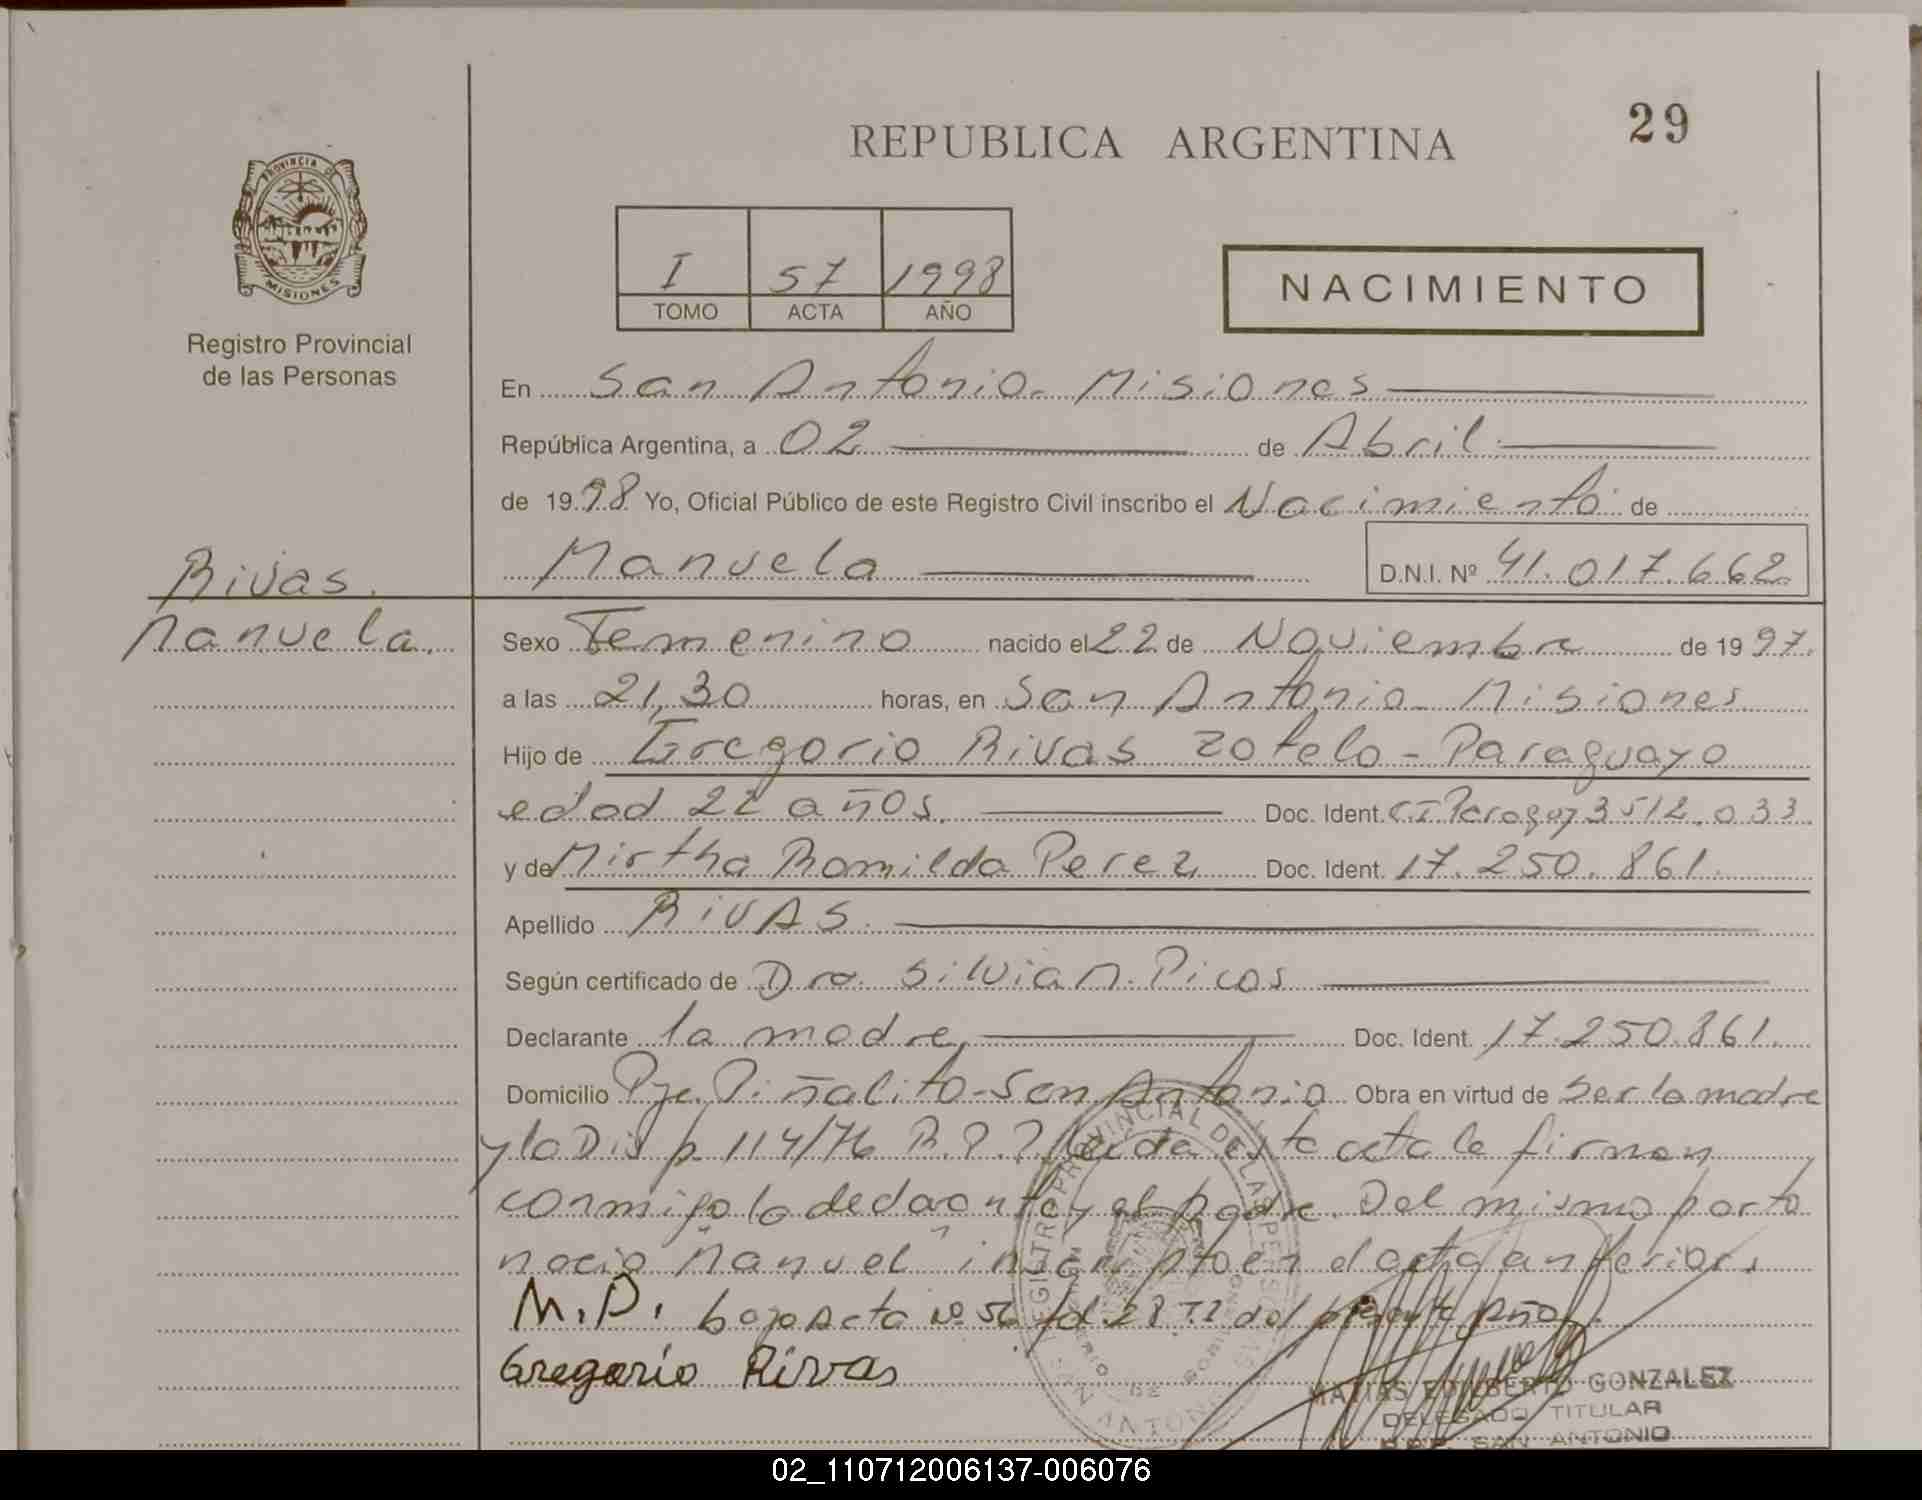 29
REPUBLICA ARGENTINA
PROVINCIA DE
MISIONES
Registro Provincial
de las Personas
I 57 1998
TOMO ACTA AÑO
NACIMIENTO
En San Antonio - Misiones
República Argentina, a 02 de Abril
de 1998 Yo, Oficial Público de este Registro Civil inscribo el Nacimiento de
Manuela D.N.I. Nº 41.017.662
Rivas
Manuela.
Sexo Femenino nacido el 22 de Noviembre de 1997.
a las 21,30 horas, en San Antonio - Misiones
Hijo de Gregorio Rivas Zotelo - Paraguayo
edad 22 años. Doc. Ident. C.I. Paraguay 3512.033.
y de Mirtha Romilda Perez Doc. Ident. 17.250.861.
Apellido RIVAS.
Según certificado de Dra. Silvia M. Picos
Declarante la madre, Doc. Ident. 17.250.861.
Domicilio Pje. Piñalito - San Antonio Obra en virtud de ser la madre
y la Disp. 114/76 R.P.P. leida esta acta la firman
conmigo la declarante y el padre. Del mismo parto
nacio "Manuel" inscripto en el acta anterior.
M.P. bajo Acta Nº 56 fol 28 Tº I del presente año.
Gregorio Rivas
REGISTRO PROVINCIAL DE LAS PERSONAS
SAN ANTONIO
MATIAS EDILBERTO GONZALEZ
DELEGADO TITULAR
R.P.P. SAN ANTONIO
02_110712006137-006076